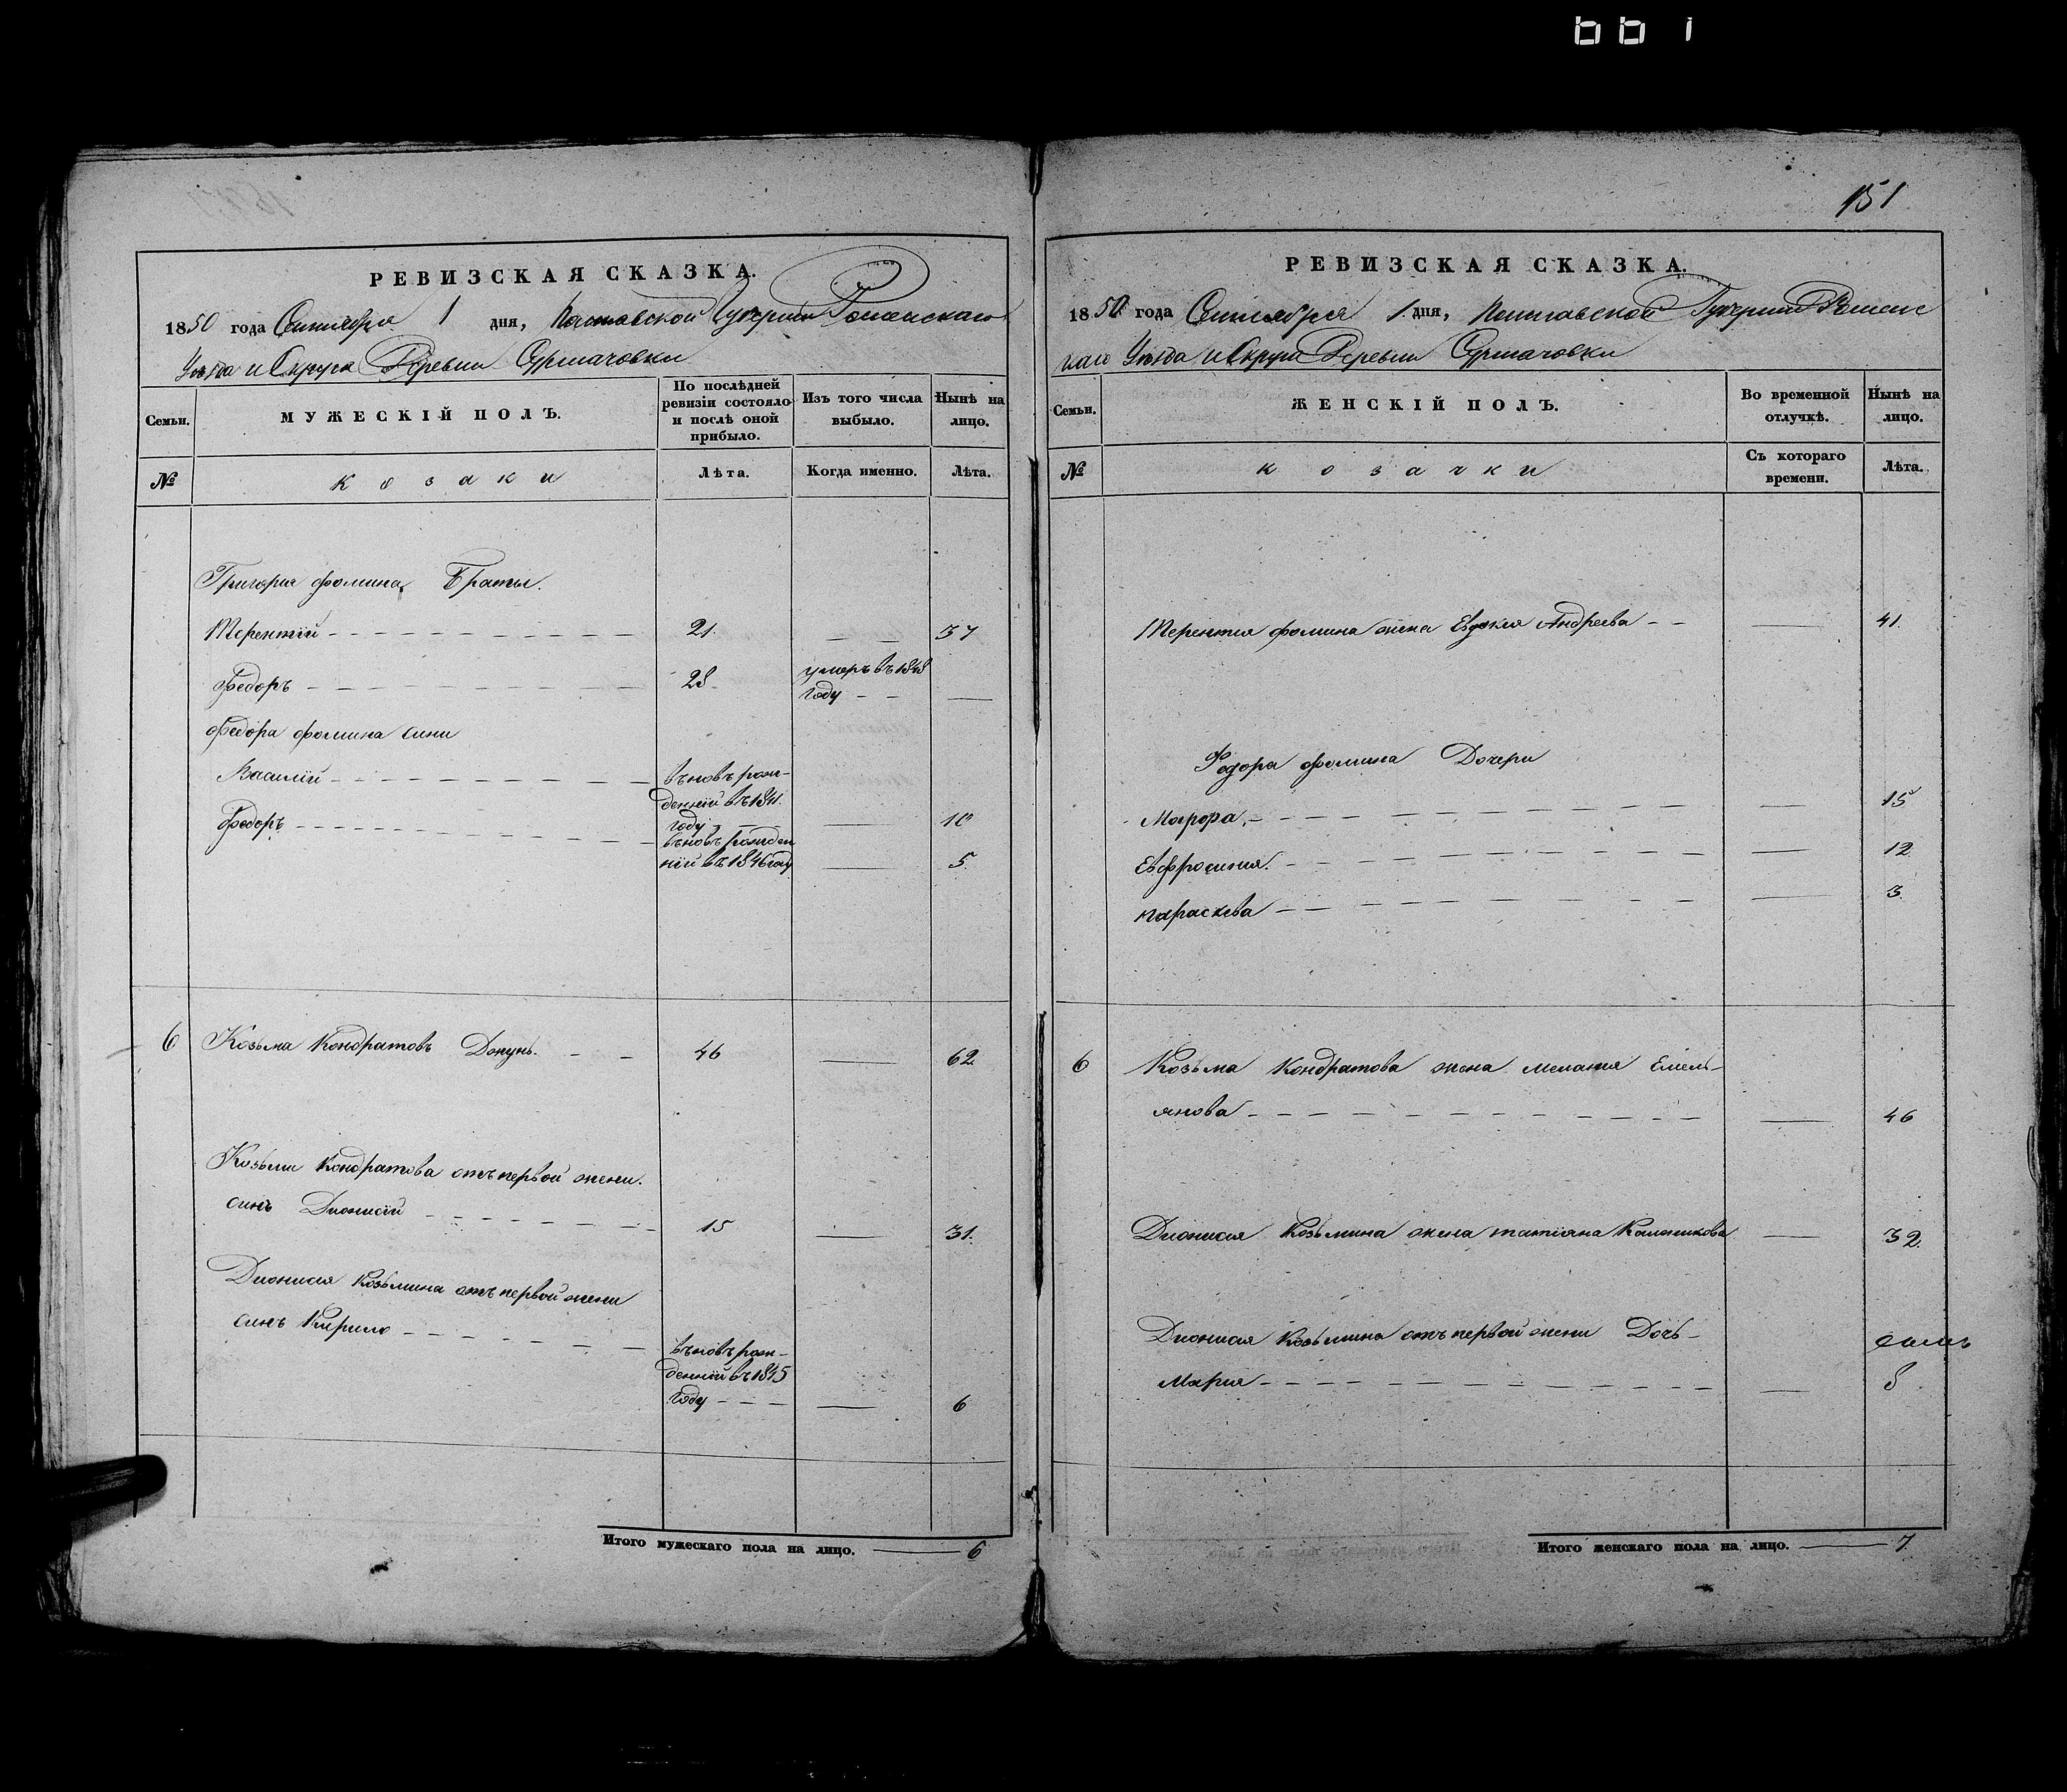 661
151
РЕВИЗСКАЯ СКАЗКА.
1850 года Сентября 1 дня, Полтавской Губерніи Роменскаго
Уѣзда и Округа Деревни Сурмачовки
Семьи.
МУЖЕСКІЙ ПОЛЪ.
По послѣдней ревизіи состояло и послѣ оной прибыло.
Изъ того числа выбыло.
Нынѣ на лицо.
№
козаки
Лѣта.
Когда именно.
Лѣта.
Григорія Фомина Браты.
Терентій 21. 37
Федоръ 28 умеръ въ 1848
году
Федора Фомина сини
Василій въновъ рож-
денній въ 1841.
году 10
Федоръ въновъ рожден
ній въ 1846 году 5
6 Козьма Кондратовъ Донунь. 46 62.
Козьми Кондратова отъ первой жени.
синъ Дионисій 15 31.
Дионисия Козьмина отъ первой жени
синъ Кирило
въновъ рож-
денній въ 1845
году 6
Итого мужескаго пола на лицо. 6
РЕВИЗСКАЯ СКАЗКА.
1850 года Сентября 1. дня, Полтавской Губерніи Роменс
каго Уѣзда и Округа Деревни Сурмачовки
Семьи.
ЖЕНСКІЙ ПОЛЪ.
Во временной отлучкѣ.
Нынѣ на лицо.
№
козачки
Съ котораго времени.
Лѣта.
Терентия Фомина жена Евдокия Андреева 41.
Федора Фомина Дочери
Марфа 15
Евфросиния. 12
параскева 3
6 Козьма Кондратова жена мелания Емель-
янова 46
Дионисия Козьмина жена татіяна Калоникова 32.
Дионисия Козьмина отъ первой жени Дочь-
Мария 8
Итого женскаго пола на лицо. 7